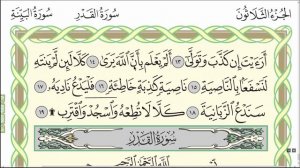 الجزء الثلاثون سورة القدر سورة البينة
أَرَءَيْتَ إِن كَذَّبَ وَتَوَلَّىٰٓ ١٣ أَلَمْ يَعْلَم بِأَنَّ ٱللَّهَ يَرَىٰ ١٤ كَلَّا لَئِن لَّمْ يَنتَهِ
لَنَسْفَعًۢا بِٱلنَّاصِيَةِ ١٥ نَاصِيَةٍ كَٰذِبَةٍ خَاطِئَةٍ ١٦ فَلْيَدْعُ نَادِيَهُۥ ١٧
سَنَدْعُ ٱلزَّبَانِيَةَ ١٨ كَلَّا لَا تُطِعْهُ وَٱسْجُدْ وَٱقْتَرِب ۩ ١٩
سورة القدر